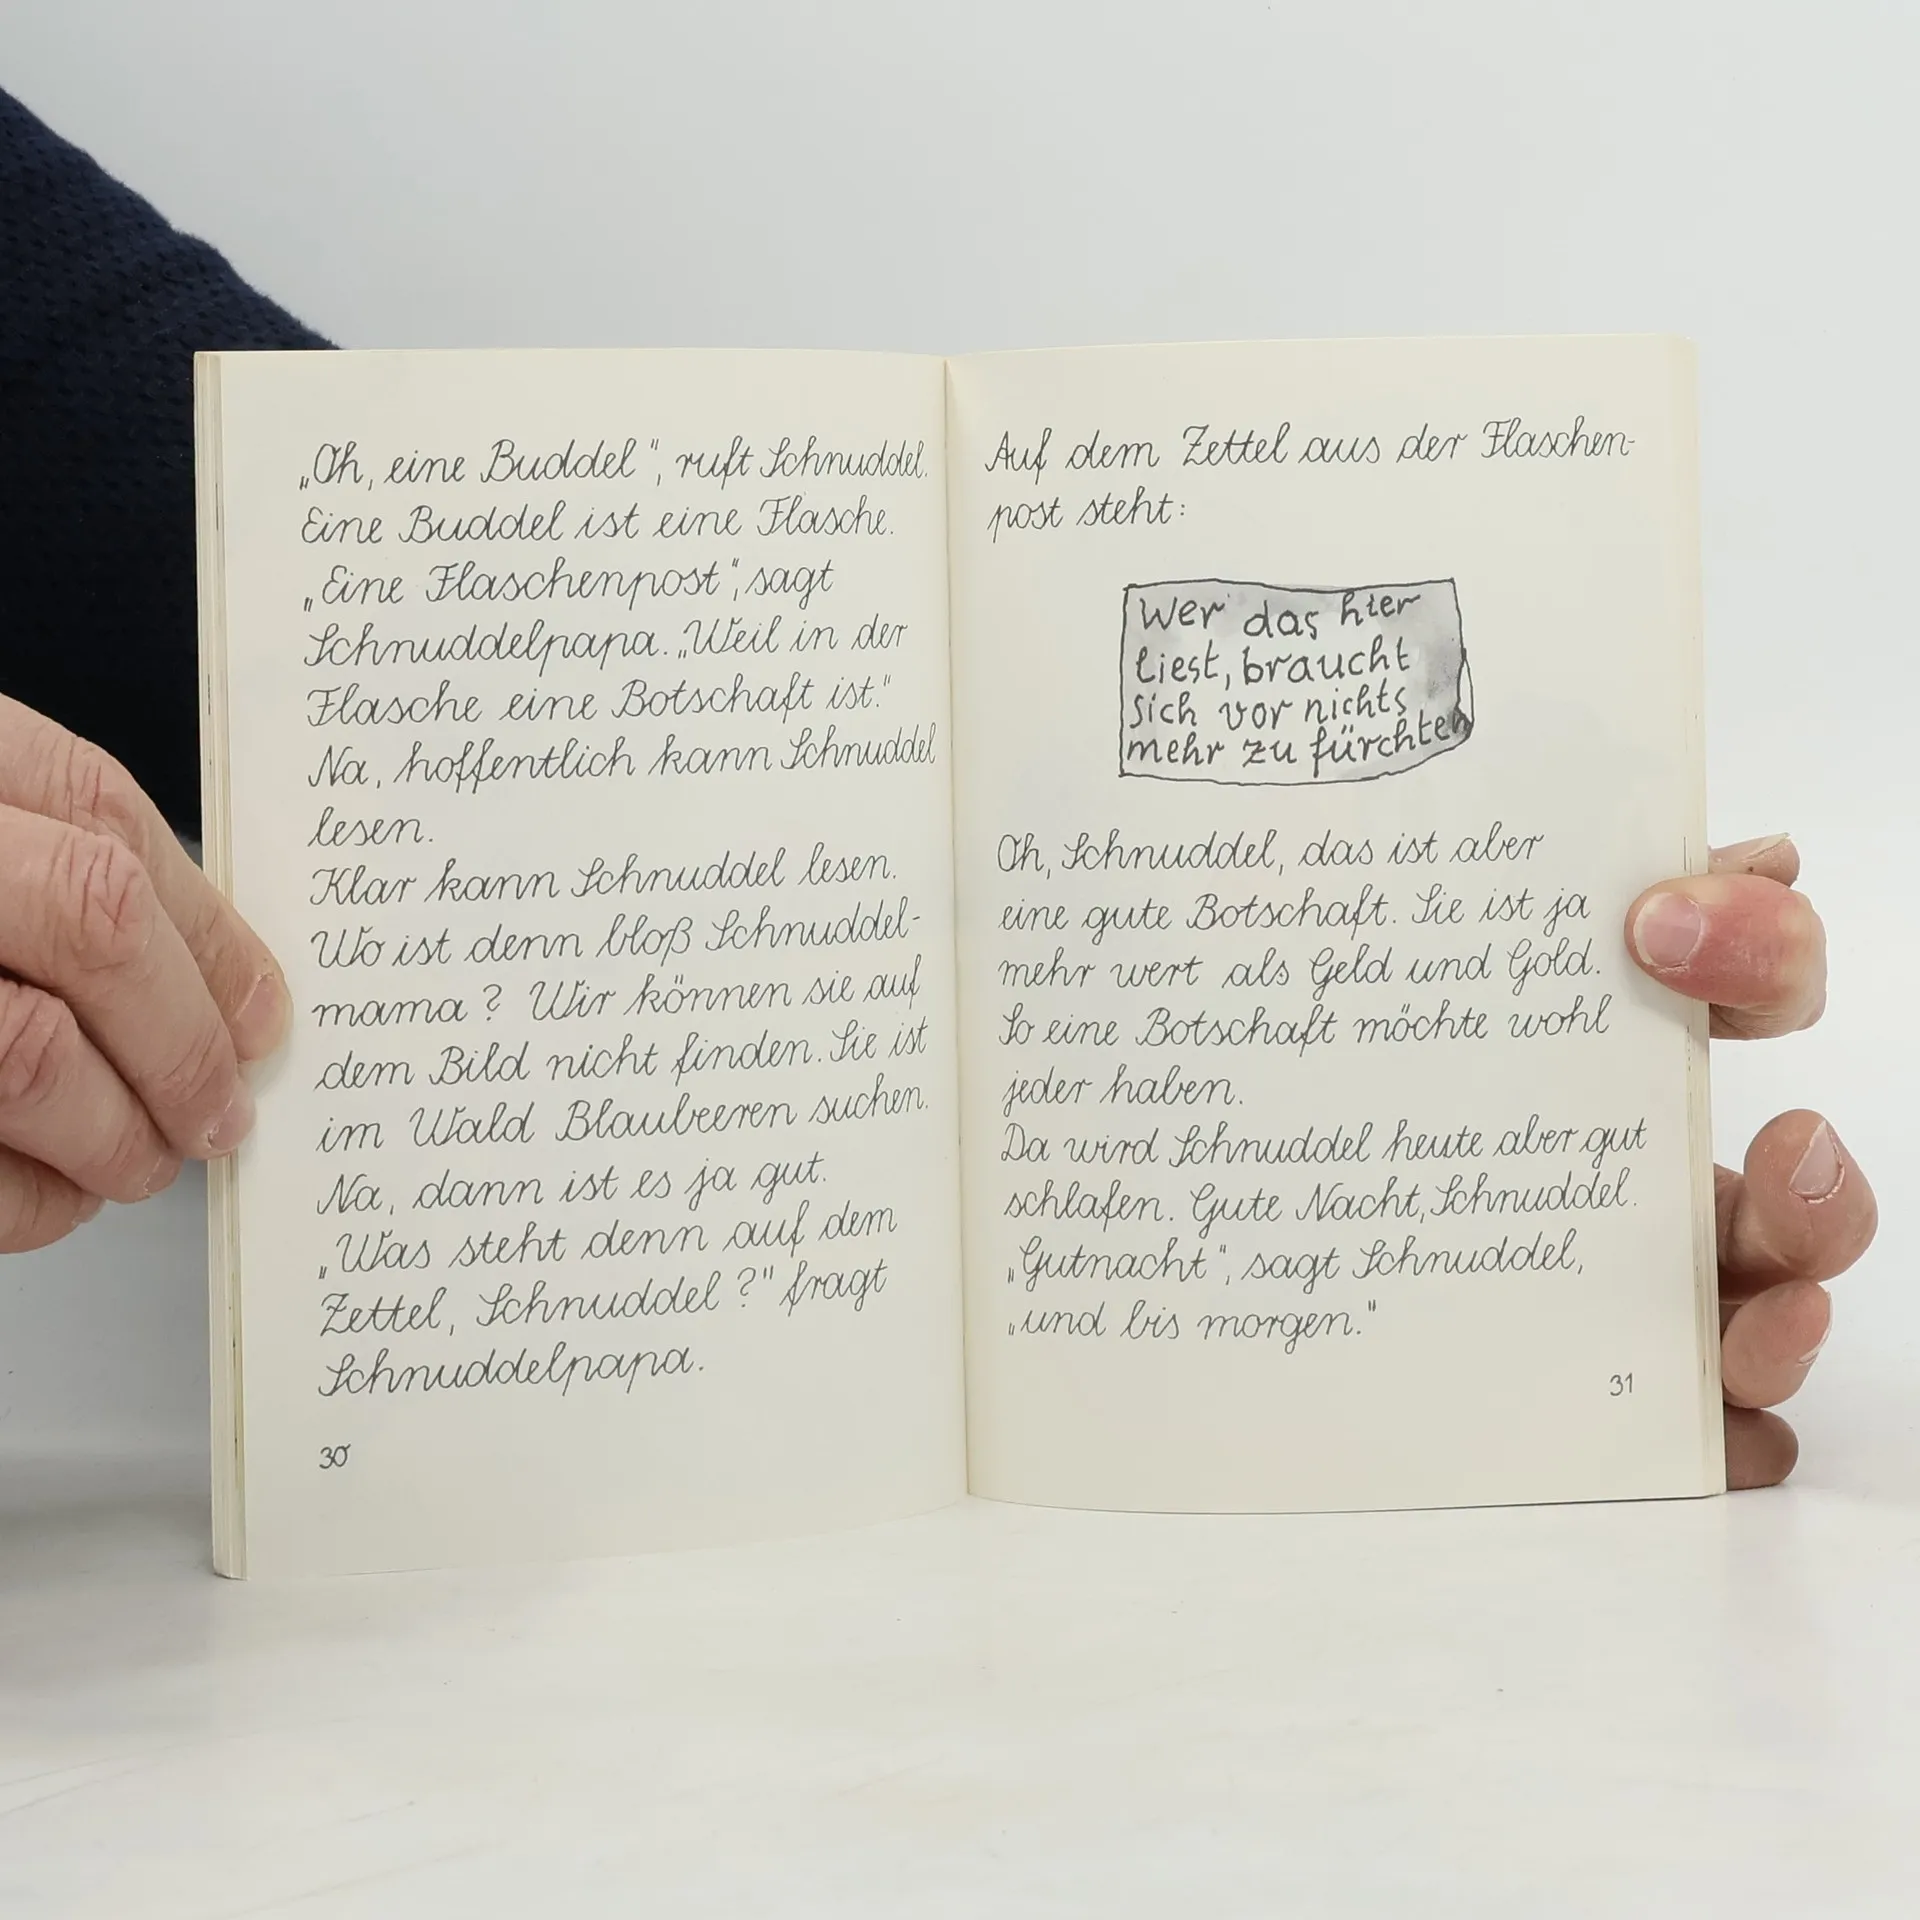 „Oh, eine Buddel“, ruft Schnuddel.
Eine Buddel ist eine Flasche.
„Eine Flaschenpost“, sagt
Schnuddelpapa. „Weil in der
Flasche eine Botschaft ist.“
Na, hoffentlich kann Schnuddel
lesen.
Klar kann Schnuddel lesen.
Wo ist denn bloß Schnuddel-
mama? Wir können sie auf
dem Bild nicht finden. Sie ist
im Wald Blaubeeren suchen.
Na, dann ist es ja gut.
„Was steht denn auf dem
Zettel, Schnuddel?“ fragt
Schnuddelpapa.
30
Auf dem Zettel aus der Flaschen-
post steht:
Wer das hier
liest, braucht
sich vor nichts
mehr zu fürchten
Oh, Schnuddel, das ist aber
eine gute Botschaft. Sie ist ja
mehr wert als Geld und Gold.
So eine Botschaft möchte wohl
jeder haben.
Da wird Schnuddel heute aber gut
schlafen. Gute Nacht, Schnuddel.
„Gutnacht“, sagt Schnuddel,
„und bis morgen.“
31